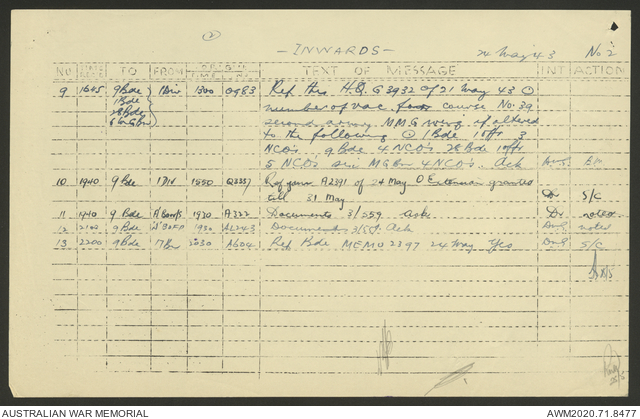 2
— INWARDS —
24 May 43 No 2
NO TO FROM TEXT OF MESSAGE INT ACTION
9 1645 9 Bde 1 Div 1300 O983 Ref this H.Q. G3932 of 21 May 43 O
1 Bde number of vac for course No. 39
28 Bde second army MMG wing if altered
6 MGBn to the following O 1 Bde 1 offr 3
NCO's. 9 Bde 4 NCO's. 28 Bde 1 offr
5 NCO's six MGBn 4 NCO's. Ack BM
10 1940 9 Bde 1 Div 1550 Q2337 Ref your A2391 of 24 May O Extension granted
till 31 May S/C
11 1940 9 Bde 1930 A322 Documents 3/559 Ack noted
12 2100 9 Bde 1930 AL243 Documents 3/559 Ack noted
13 2200 9 Bde 17 Bn 2030 A604 Ref Bde MEMO 2397 24 May Yes S/C
AUSTRALIAN WAR MEMORIAL
AWM2020.71.8477